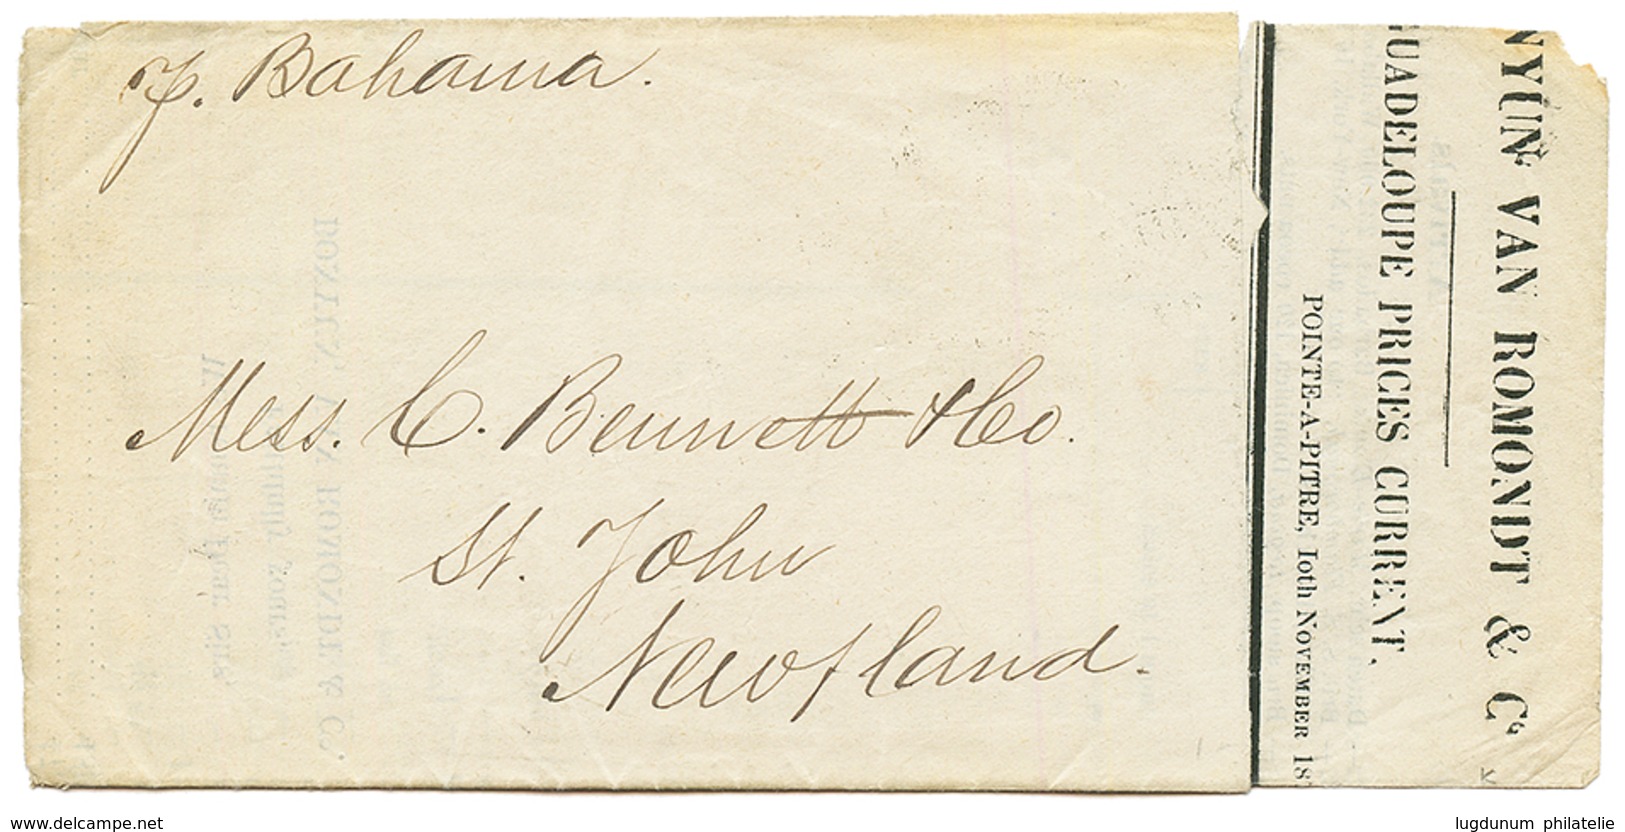 p. Bahama.
Mess. C. Bennett & Co.
St. John
Newfland.
NYUN VAN ROMONDT & Co
GUADELOUPE PRICES CURRENT,
POINTE-A-PITRE, 10th NOVEMBER 18
www.delcampe.net
lugdunum philatelie